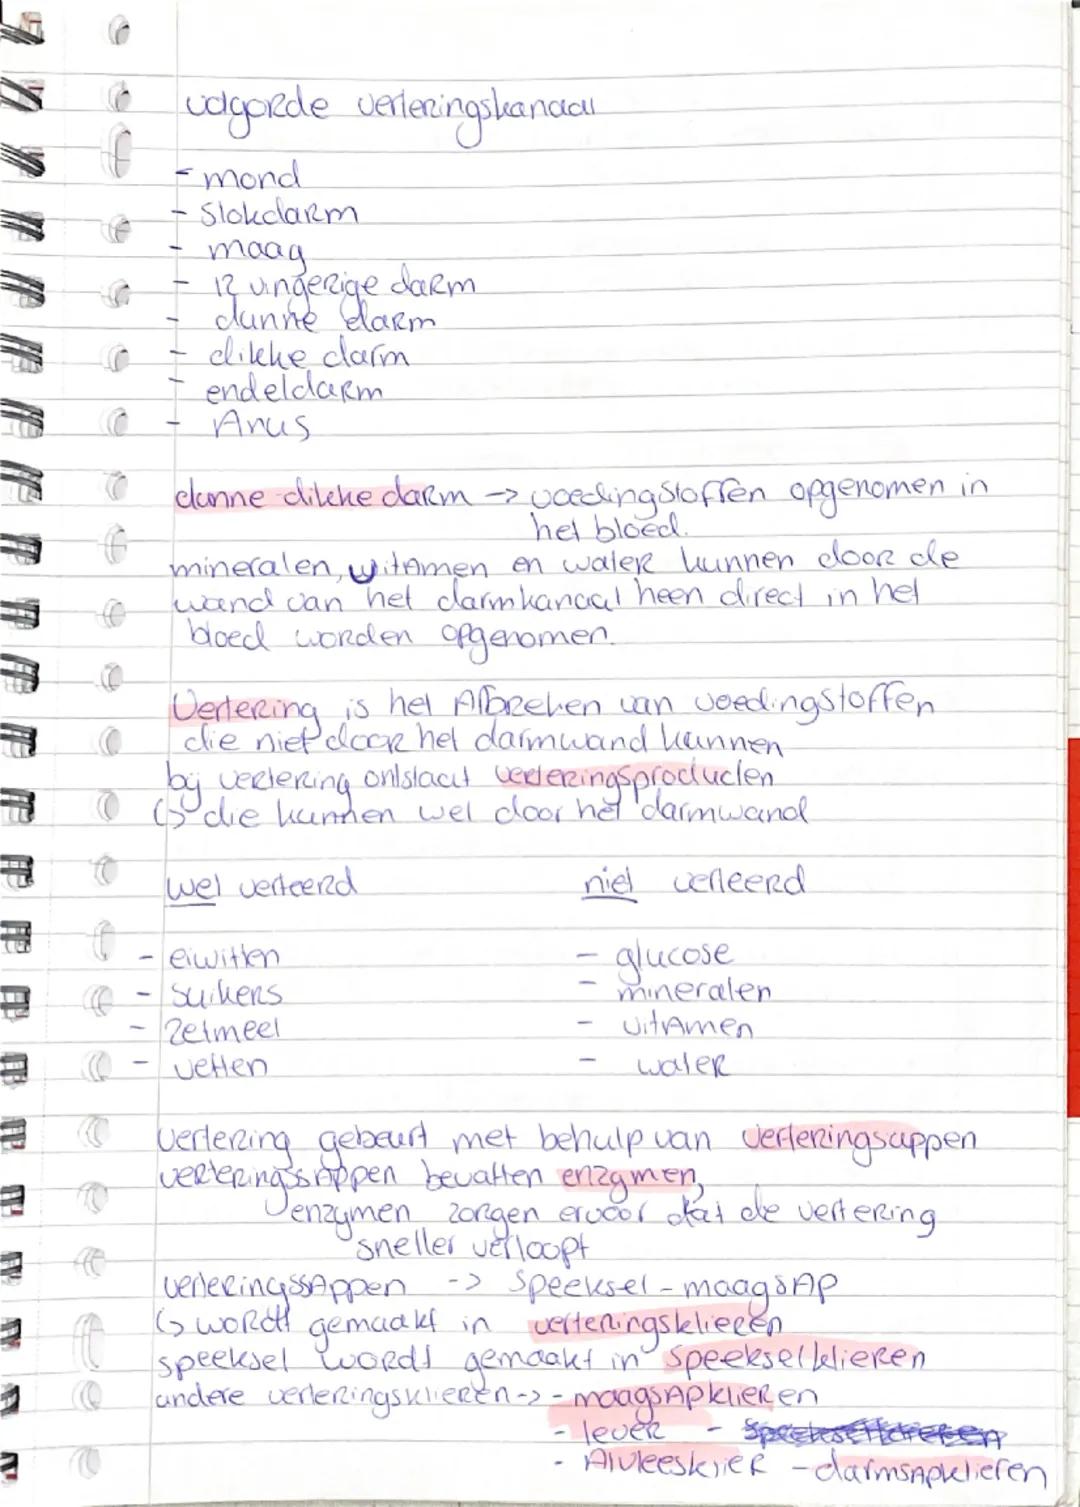 volgorde verteringskanaal
- mond
- Slokdarm
- maag
- 12 vingerige darm
- dunne darm
- dikke darm
- endeldarm
- Anus
dunne-dikke darm -> voedingstoffen opgenomen in
het bloed.
mineralen, vitamen en water kunnen door de
wand van het darmkanaal heen direct in het
bloed worden opgenomen.
Vertering is het Afbreken van voedingstoffen
die niet door het darmwand kunnen
bij vertering ontstaat verteringsproducten
↳ die kunnen wel door het darmwand
wel verteerd niet verteerd
- eiwitten - glucose
- suikers - mineralen
- zetmeel - vitAmen
- vetten - water
vertering gebeurt met behulp van verteringsappen
verteringssAppen bevatten enzymen,
enzymen zorgen ervoor dat de vertering
sneller verloopt
verteringssAppen -> speeksel - maagsAp
↳ wordt gemaakt in verteringsklieren
speeksel wordt gemaakt in speekselklieren
andere verteringsklieren -> - maagsApklieren
- lever -
- Alvleesklier - darmsApklieren